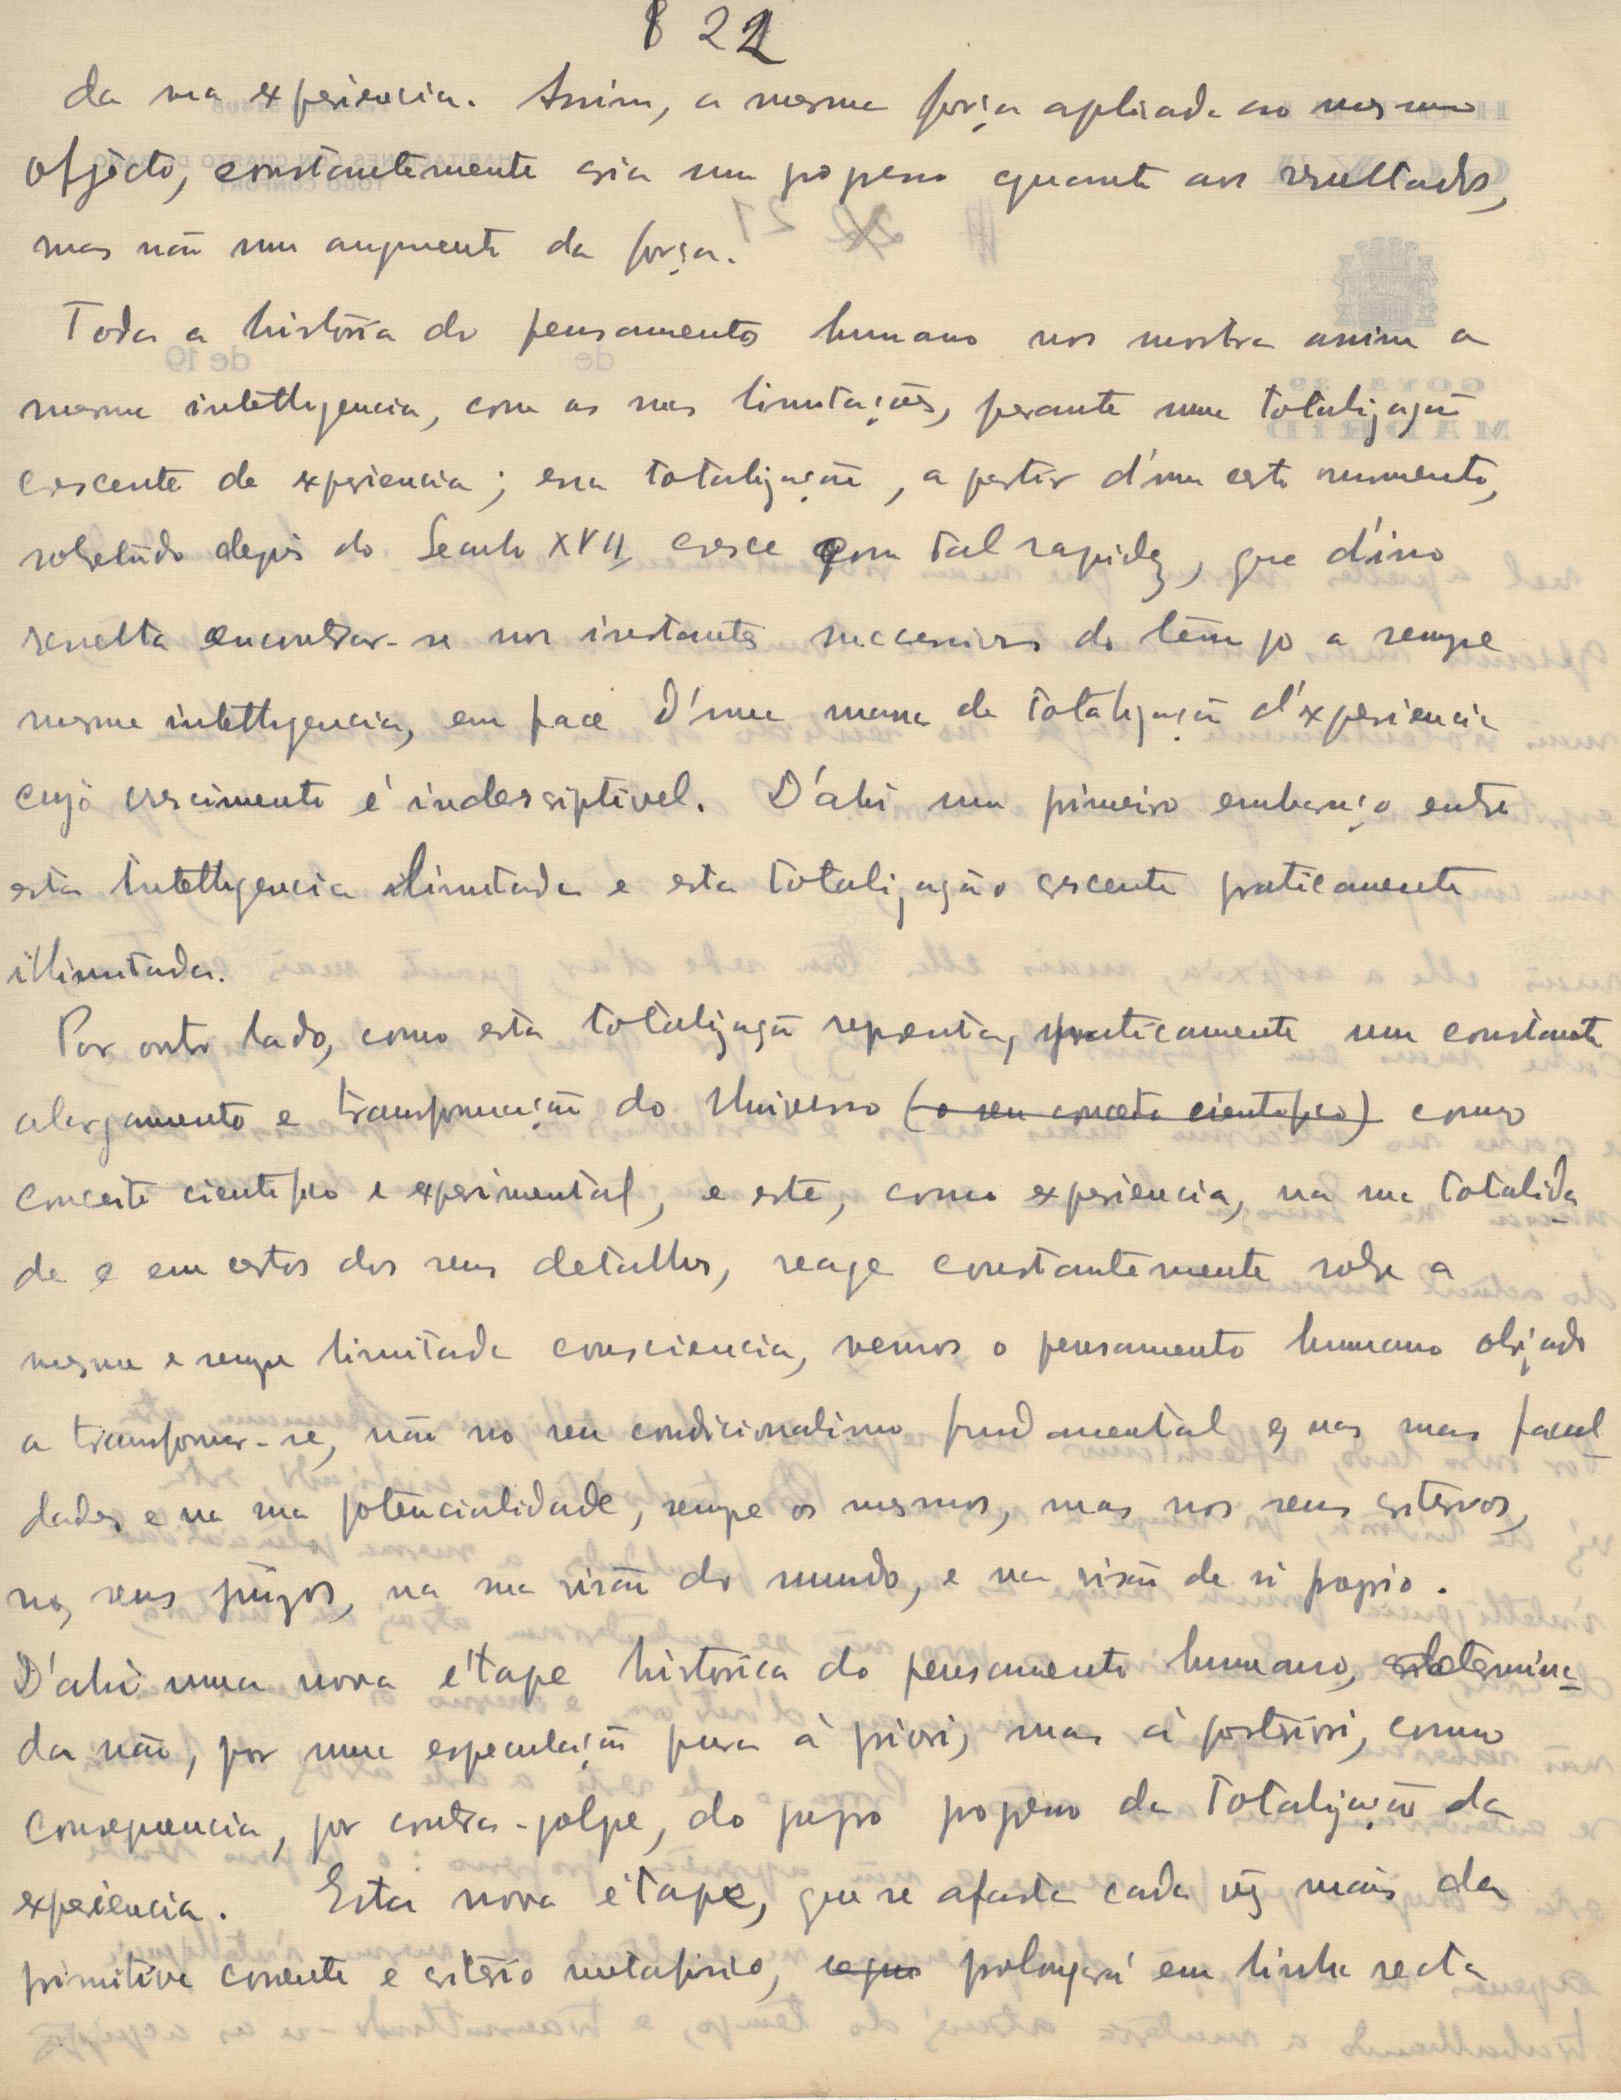 822
da sua experiencia. Assim, a mesma força aplicada ao mesmo
objécto, constantemente cria um progresso quanto aos resultados,
mas não um augmento da força.
Toda a história do pensamento humano nos mostra assim a
mesma intelligencia, com as suas limitações, perante uma totalização
crescente de experiencia; essa totalização, a partir d'um certo momento,
sobretudo depois do Seculo XVII cresce com tal rapidez, que d'isso
resulta encontrar-se nos instantes successivos do tempo a sempre
mesma intelligencia, em face d'uma massa de totalização d'experiencia
cujo crescimento é indescriptivel. D'ahi um primeiro embaraço entre
esta intelligencia limitada e esta totalização crescente praticamente
illimitada.
Por outro lado, como esta totalização representa, praticamente um constante
alargamento e transformação do Universo (o seu conceito cientifico) como
conceito cientifico e experimental, e este, como experiencia, na sua totalida
de e em certos dos seus detalhes, reage constantemente sobre a
mesma e sempre limitada consciencia, vemos o pensamento humano obrigado
a transformar-se, não no seu condicionalismo fundamental e nas suas facul
dades e na sua potencialidade, sempre os mesmos, mas nos seus criterios,
nos seus juizos, na sua visão do mundo, e na visão de si proprio.
D'ahi uma nova étape historica do pensamento humano, determina
da não, por uma especulação pura à priori, mas à posteriori, como
consequencia, por contra-golpe, do proprio progresso da totalização da
experiencia. Esta nova étape, que se afasta cada vez mais da
primitiva corrente e criterio metafisico, prolongará em linha recta